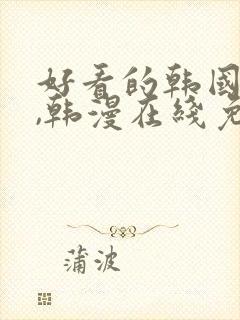 好看的韩国
,韩漫在线免
蒲波